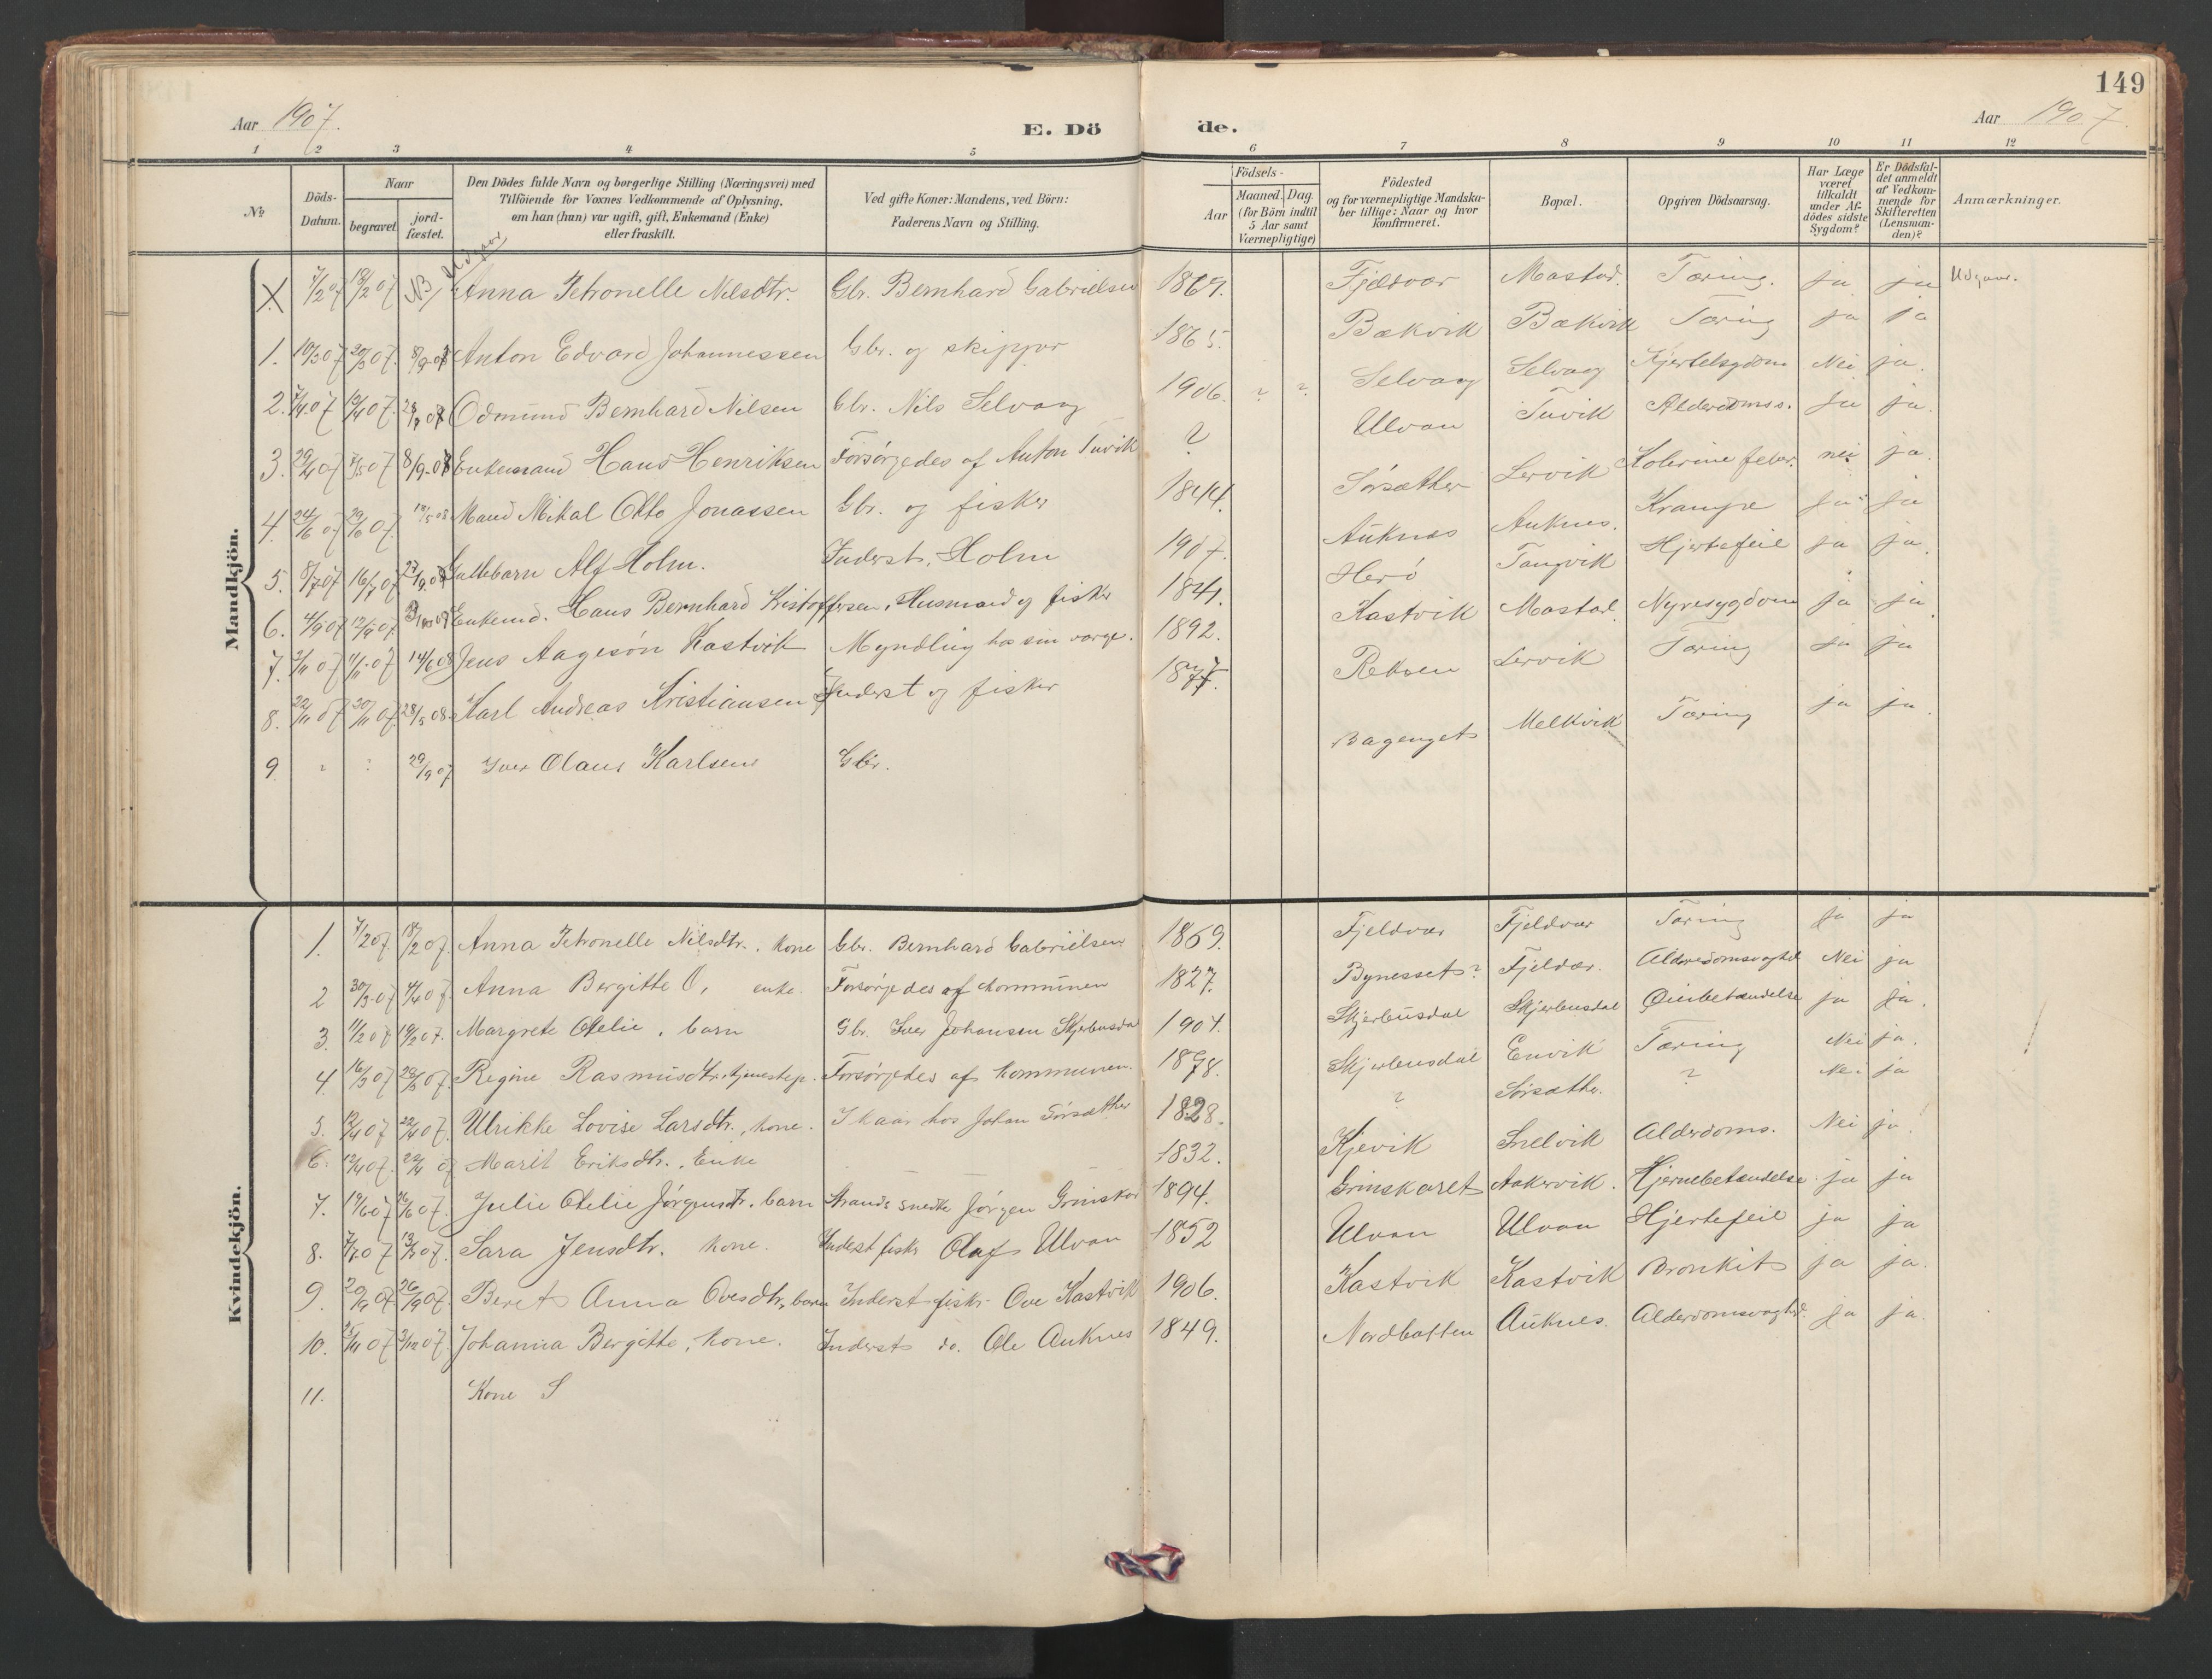 149
Aar 1907.
E. Dö de.
Aar 1907.
1 2 3 4 5 6 7 8 9 10 11 12
№
Döds-Datum.
Naar
begravet
jord-fæstet.
Den Dödes fulde Navn og borgerlige Stilling (Næringsvei) med
Tilföiende for Voxnes Vedkommende af Oplysning,
om han (hun) var ugift, gift, Enkemand (Enke)
eller fraskilt.
Ved gifte Koner: Mandens, ved Börn:
Faderens Navn og Stilling.
Födsels-
Aar
Maaned. Dag.
(for Börn indtil
5 Aar samt
Værnepligtige)
Födested
og for værnepligtige Mandska-
ber tillige: Naar og hvor
konfirmeret.
Bopæl.
Opgiven Dödsaarsag.
Har Læge
været
tilkaldt
under Af-
dödes sidste
Sygdom?
Er Dödsfal-
det anmeldt
af Vedkom-
mende for
Skifteretten
(Lensman-
den)?
Anmærkninger.
Mandkjön.
X 7/2 07 18/2 07 NB Anna Petronelle Nilsdtr. Gbr. Bernhard Gabrielsen 1869. Fjeldvær Mastad. Tæring. ja ja Udgaar.
1. 10/3 07 20/3 07. 8/9 07 Anton Edvard Johannessen Gbr. og skipper 1865. Bækvik Bækvik Tæring ja ja
2. 7/4 07 12/4 07. Odmund Bernhard Nilsen Gbr. Nils Selvaag 1906. ? ? Selvaag Selvaag Kjertelsygdom Nei ja.
3. 29/4 07 7/5 07 8/9 07 Enkemand Hans Henriksen Forsørgedes af Anton Tuvik ? Ulvan Tuvik Alderdomss. Ja ja.
4. 24/6 07 29/6 07. 18/5 08 Mand Mikal Otto Jonassen Gbr. og fisker 1844. Sørsæther Lervik Kolerine feber. nei ja.
5. 8/7 07 16/7 07 Guttebarn Alf Holm. Inderst. Holm 1907. Auknes Auknes. Krampe ja ja
6. 4/9 07 12/9 07. Enkemd. Hans Bernhard Kristoffersen, Husmand og fisker 1841. Herö Tangvik Hjertefeil ja ja.
7. 2/11 07 11/11 07 14/6 08 Jens Aagesøn Kastvik Myndling hos sin værge. 1892. Kastvik Mastad. Nyresygdom ja ja.
8. 22/11 07 30/11 07. 28/5 08. Karl Andreas Kristiansen Inderst og fisker 1877. Reksen Lervik Tæring ja ja
9. ? ? 29/9 07 Iver Olaus Karlsen Gbr. Bagenget Melkvik Tæring ja ja.
Kvindekjön.
1. 7/2 07. 18/2 07. Anna Petronelle Nilsdtr. kone Gbr. Bernhard Gabrielsen 1869. Fjeldvær Fjeldvær Tæring ja ja
2 30/3 07 4/4 07. Anna Bergitte O, enke. Forsørgedes af kommunen 1827. Bynesset? Fjeldvær. Alderdomsvaghed Nei ja
3. 11/2 07 19/2 07. Margrete Otelie, barn Gbr. Iver Johansen Skjerbusdal 1901. Skjerbusdal Skjerbusdal Öienbetændelse ja ja.
4. 16/3 07 28/3 07. Regine Rasmusdtr. tjenestep. Forsørgedes af kommunen. 1878. Skjerbusdal Envik Tæring Nei ja.
5. 12/4 07 22/4 07. Ulrikke Lovise Larsdtr., kone. I kaar hos Johan Sørsæther 1828. ? Sørsæther. ? Nei ja
6. 12/4 07. 22/4 07 Marit Eriksdtr., Enke 1832. Kjevik Snelvik Alderdoms. Nei ja.
7. 19/6 07 26/6 07. Julie Otelie Jørgensdtr. barn Strands snedk Jørgen Grinskar 1894. Grinskaret Aakervik. Hjernebetændelse ja ja
8. 7/7 07 13/7 07. Sara Jensdtr. kone. Inderst fisk. Olaf Ulvan 1852 Ulvan Ulvan Hjertefeil ja ja
9. 20/9 07. 26/9 07. Beret Anna Ovesdtr, barn Inderst fisk. Ove Kastvik 1906. Kastvik Kastvik Bronkit ja ja.
10. 25/11 07 3/12 07. Johanna Bergitte, kone. Inderst do. Ole Auknes 1849. Nordbotten Auknes. Alderdomsvaghed. ja ja.
11. Kone S